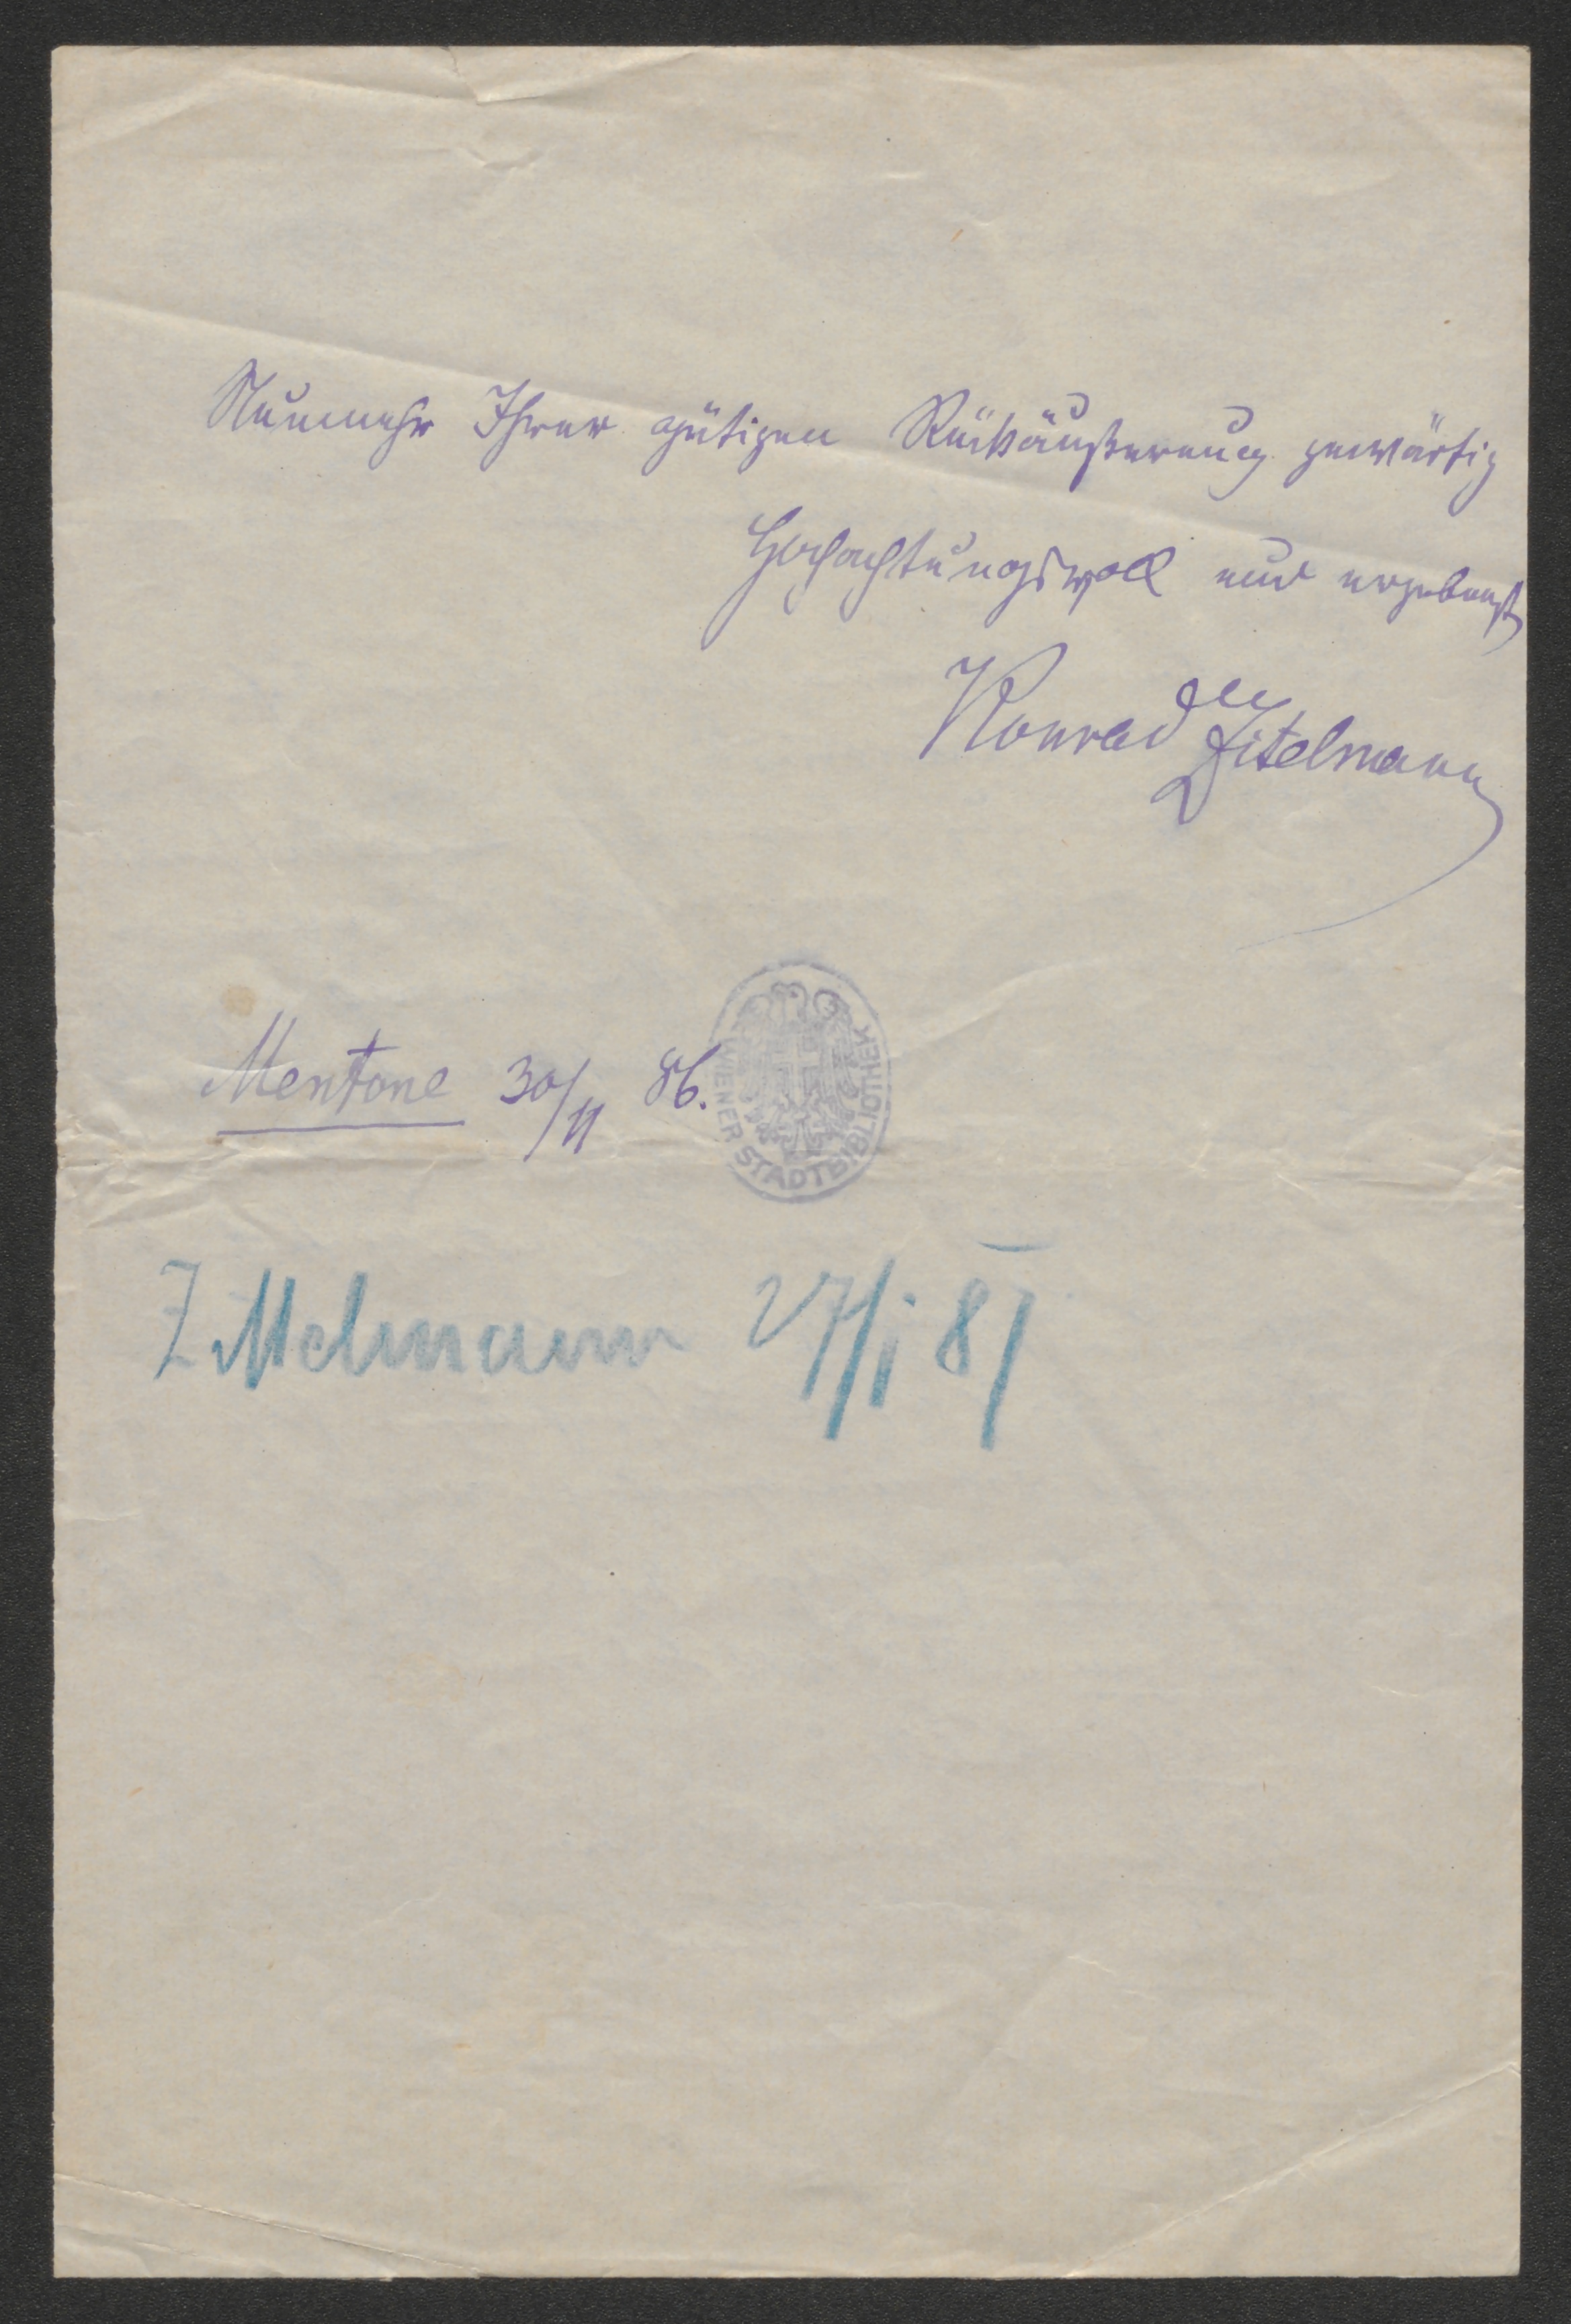 Nunmehr Ihrer gütigen Rückäußerung gewärtig
Hochachtungsvoll und ergebenst
Konrad Zitelmann
Mentone 30/11 86.
WIENER STADTBIBLIOTHEK
Zittelmann 27/i 87